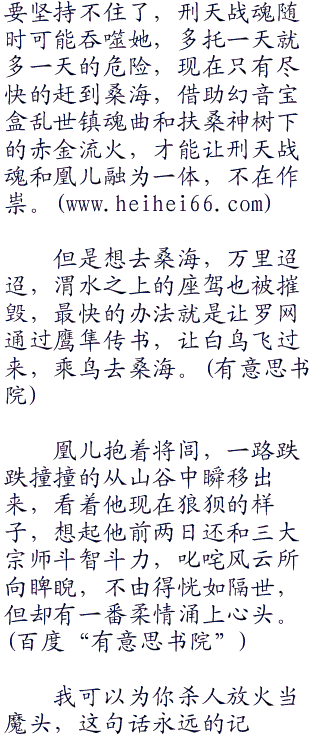 要坚持不住了，刑天战魂随
时可能吞噬她，多托一天就
多一天的危险，现在只有尽
快的赶到桑海，借助幻音宝
盒乱世镇魂曲和扶桑神树下
的赤金流火，才能让刑天战
魂和凰儿融为一体，不在作
祟。(www.heihei66.com)
但是想去桑海，万里迢
迢，渭水之上的座驾也被摧
毁，最快的办法就是让罗网
通过鹰隼传书，让白鸟飞过
来，乘鸟去桑海。(有意思书
院)
凰儿抱着将闾，一路跌
跌撞撞的从山谷中瞬移出
来，看着他现在狼狈的样
子，想起他前两日还和三大
宗师斗智斗力，叱咤风云所
向睥睨，不由得恍如隔世，
但却有一番柔情涌上心头。
(百度“有意思书院”)
我可以为你杀人放火当
魔头，这句话永远的记